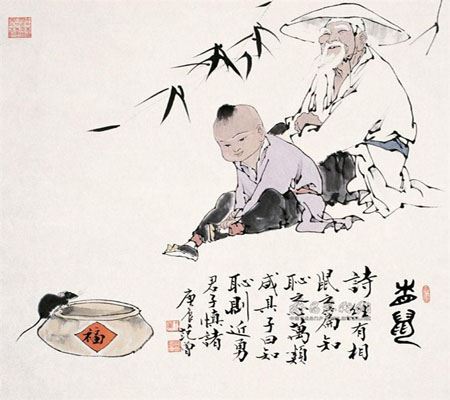 鼠
詩經有相
鼠之篇知
恥之心萬類
咸具子曰知
恥則近勇
君子慎諸
庚辰范曾
福